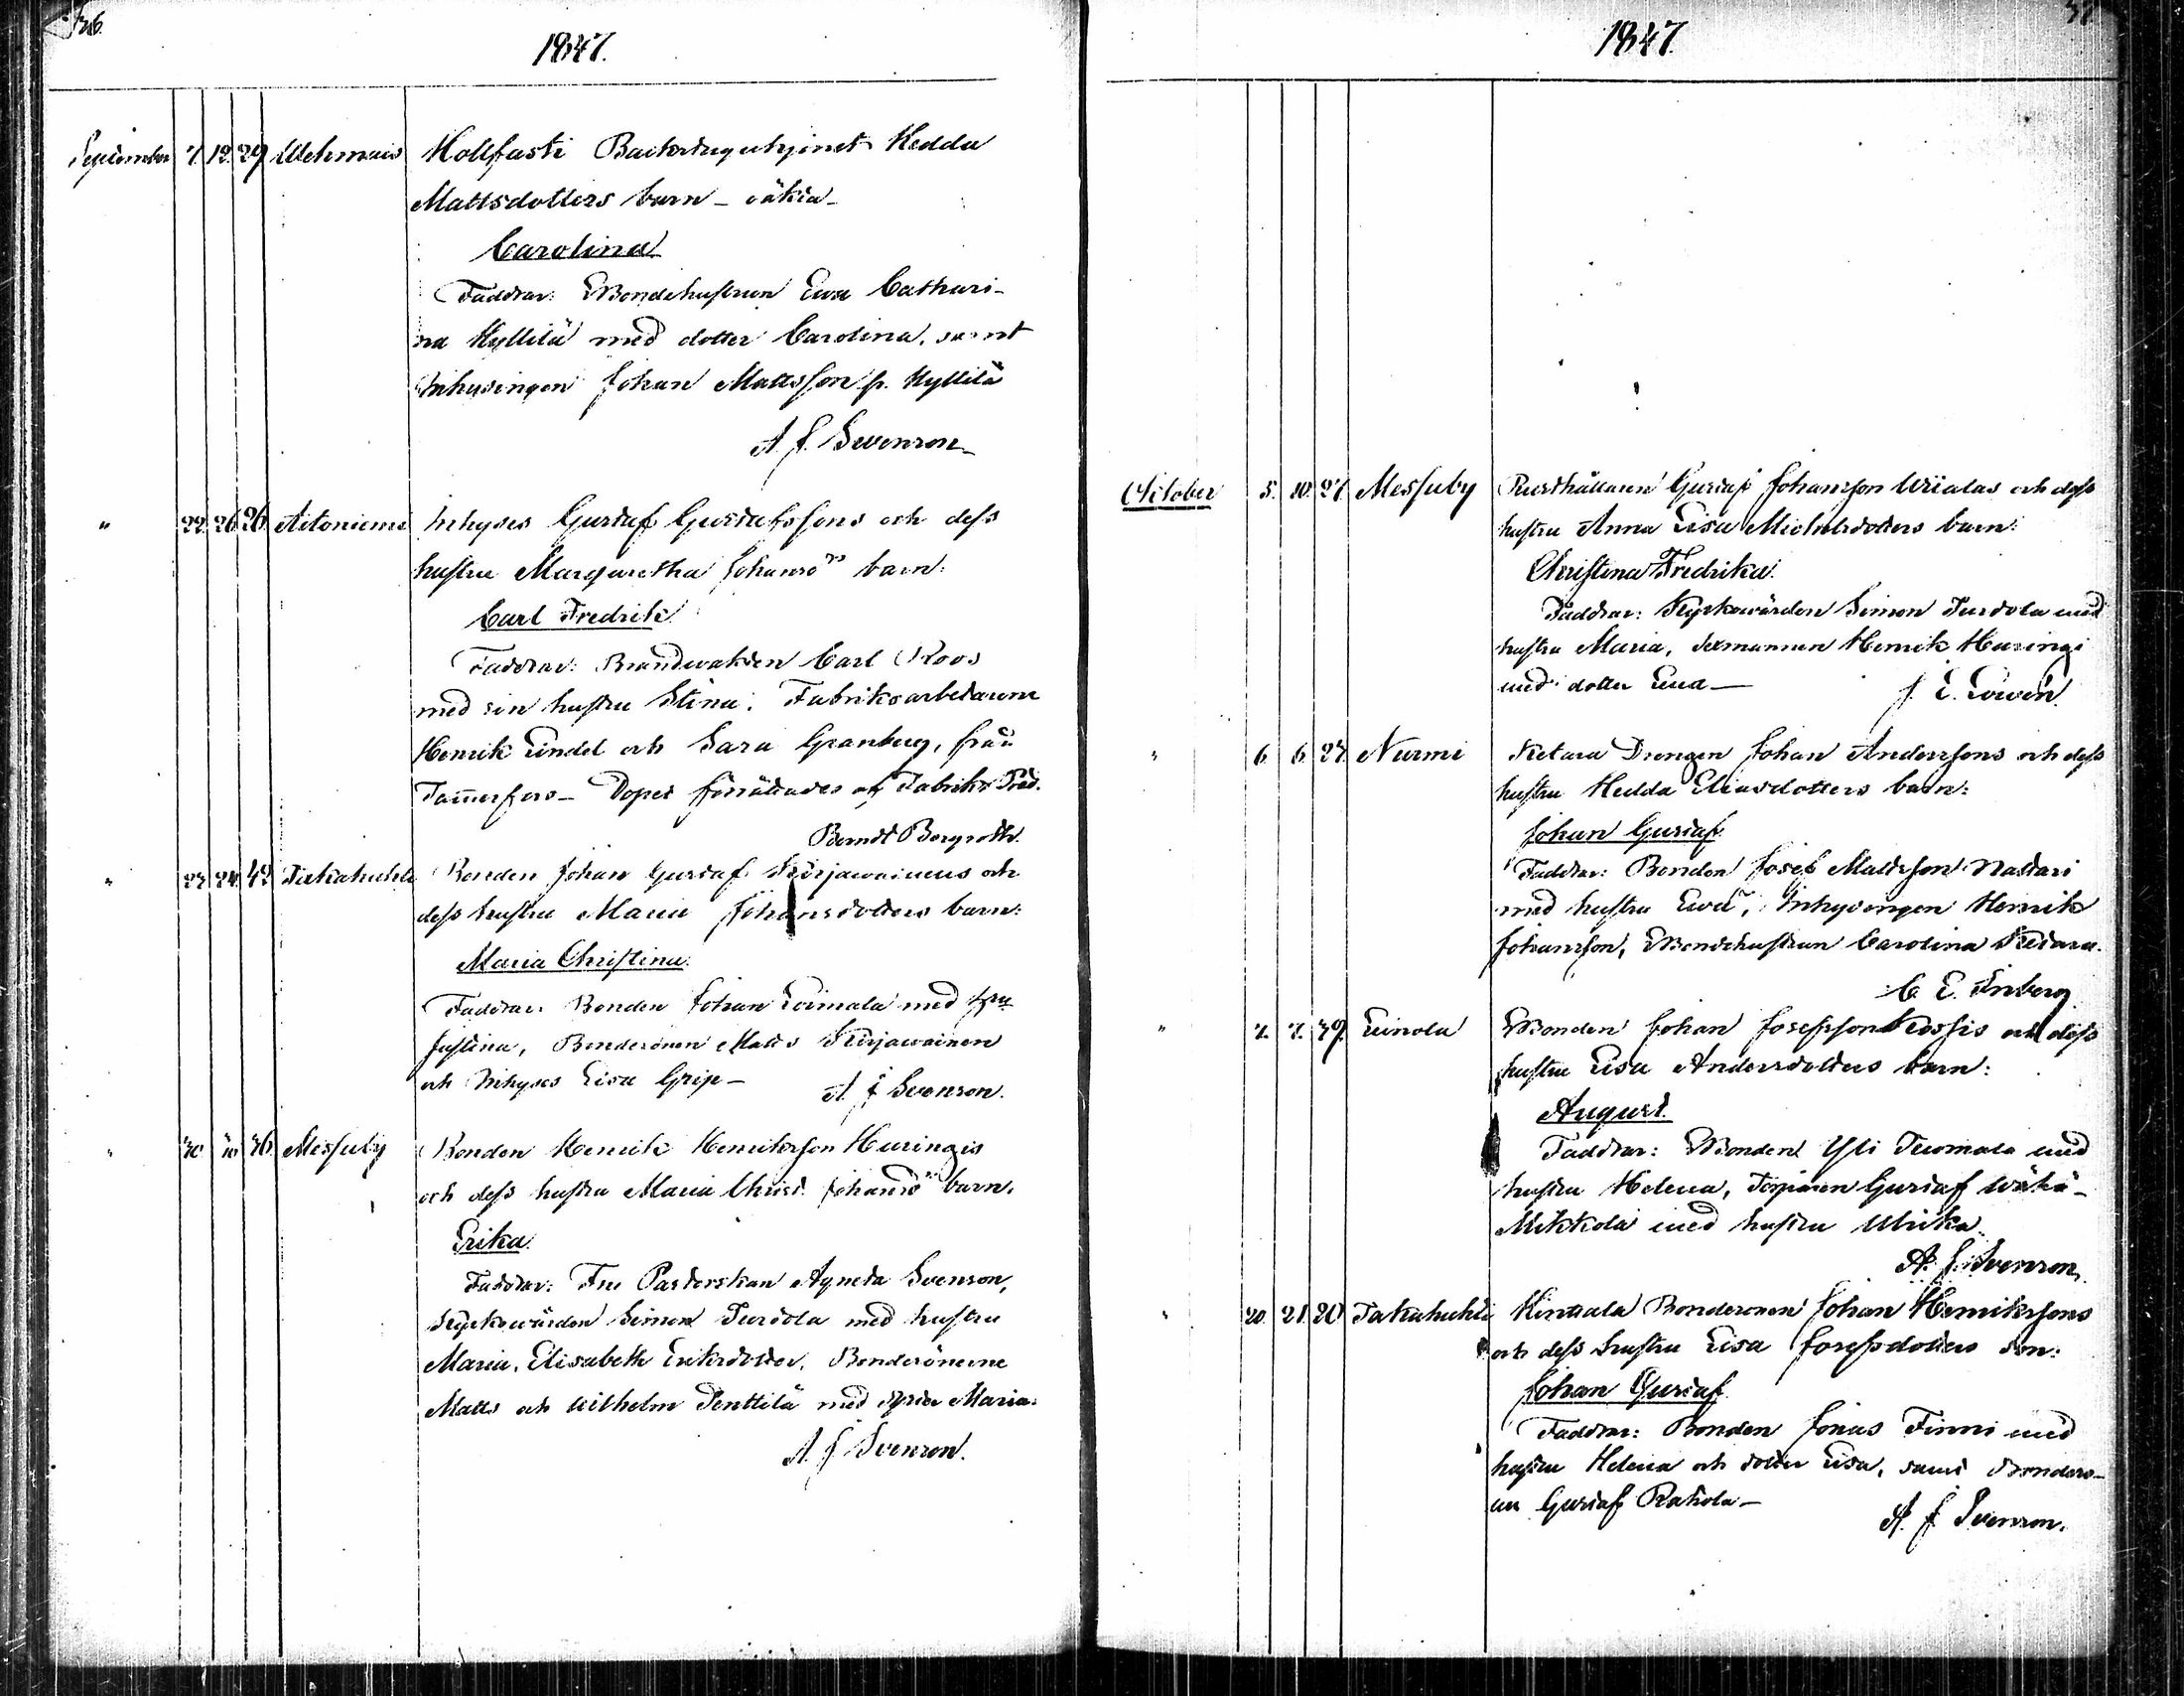 36.
1847.
September 7. 12. 29 Wehmais Hollfasti Hedda
Mattsdotters barn – oäkta –
Carolina
Faddrar: Bondehustrun Ewa Cathari-
na Kyllilä med dotter Carolina, samt
Inhysingen Johan Mattsson fr. Kyllilä
A. J. Svenson
" 22. 26. 26. Aitoniemi Inhyses Gustaf Gustafssons och dess
hustru Margaretha Johansdrs barn:
Carl Fredrik.
Faddrar: Brandvakten Carl Roos
med sin hustru Stina, Fabriksarbetarne
Henrik Lindel och Sara Granberg, från
Tammerfors – Dopet förrättades af Fabriks Pred.
Berndt Bergroth.
" 23. 24. 42. Takahuhti Bonden Johan Gustaf Kirjawainens och
dess hustru Maria Johansdotters barn:
Maria Christina.
Faddrar: Bonden Johan Toimala med hru
Justina, Bondesonen Matts Kirjawainen
och Inhyses Lisa Grip –
A. J. Svenson.
" 30. 36. Messuby Bonden Henrik Henriksson Huringis
och dess hustru Maria Christ. Johansdrs barn.
Erika.
Faddrar: Fru Pastorskan Agneta Svenson,
Kyrkowärden Simon Turtola med hustru
Maria, Elisabeth Eriksdotter, Bondesönerne
Matts och Wilhelm Penttilä med syster Maria.
A. J. Svenson.
37
1847.
October 5. 10. 27. Messuby Rusthållaren Gustaf Johansson Wiialas och dess
hustru Anna Lisa Michelsdotters barn:
Christina Fredrika.
Faddrar: Kyrkowärden Simon Turtola med
hustru Maria, Sexmannen Henrik Huringi
med dotter Ewa –
J. E. Lowén.
" 6. 6. 27. Nurmi Ketara Drengen Johan Anderssons och dess
hustru Hedda Eliasdotters barn:
Johan Gustaf.
Faddrar: Bonden Josef Mattsson Nattari
med hustru Ewa, Inhysingen Henrik
Johansson, Bondehustrun Carolina Ketara.
C. E. Inberg
" 7. 7. 39. Leinola Bonden Johan Josefsson Kossis och dess
hustru Lisa Andersdotters barn:
August.
Faddrar: Bonden Yli Tuomala med
hustru Helena, Torparen Gustaf Wähä-
Mikkola med hustru Ulrika.
A. J. Svenson.
" 20. 21. 20 Takahuhti Kintala Bondesonen Johan Henrikssons
och dess hustru Lisa Josefsdotters son:
Johan Gustaf.
Faddrar: Bonden Jonas Finni med
hustru Helena och dotter Lisa, samt Bondeso-
nen Gustaf Rahola –
A. J. Svenson.